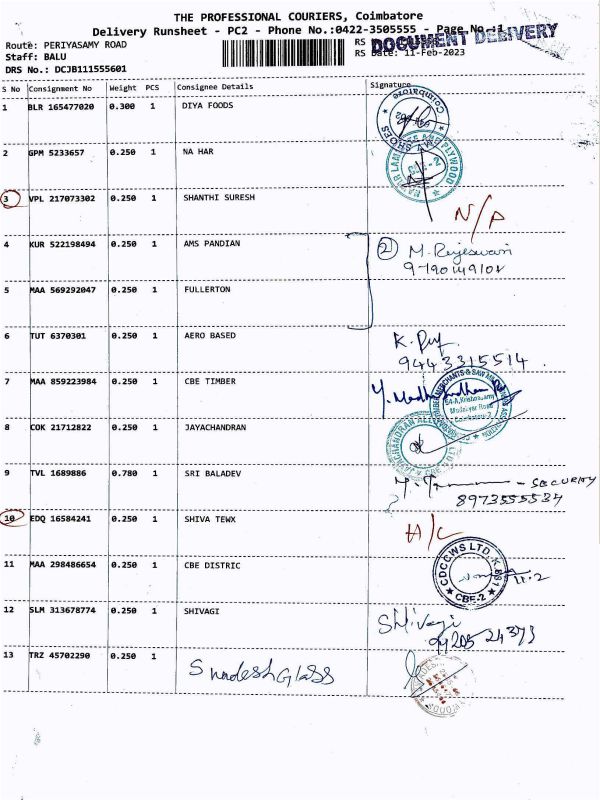 THE PROFESSIONAL COURIERS, Coimbatore
Delivery Runsheet - PC2 - Phone No.:0422-3505555 - Page No.:1
DOCUMENT DELIVERY
Route: PERIYASAMY ROAD
RS
Staff: BALU
RS Date: 11-Feb-2023
DRS No.: DCJB111555601
S No Consignment No Weight PCS Consignee Details Signature
1 BLR 165477020 0.300 1 DIYA FOODS
Coimbatore
SHOES
2 GPM 5233657 0.250 1 NA HAR
PLYWOOD
3 VPL 217073302 0.250 1 SHANTHI SURESH
N/A
4 KUR 522198494 0.250 1 AMS PANDIAN
2 M. Rajeswari
5 MAA 569292047 0.250 1 FULLERTON
6 TUT 6370301 0.250 1 AERO BASED
9443315514
7 MAA 859223984 0.250 1 CBE TIMBER
MERCHANTS & SAW
8 COK 21712822 0.250 1 JAYACHANDRAN
JAYACHANDRAN
9 TVL 1689886 0.780 1 SRI BALADEV
- SECURITY
8973555534
10 EDQ 16584241 0.250 1 SHIVA TEWX
A/C
11 MAA 298486654 0.250 1 CBE DISTRIC
CDCCWS LTD. K.891
CBE-2
12 SLM 313678774 0.250 1 SHIVAGI
Shivagi
13 TRZ 45702290 0.250 1 Swadesh Glass